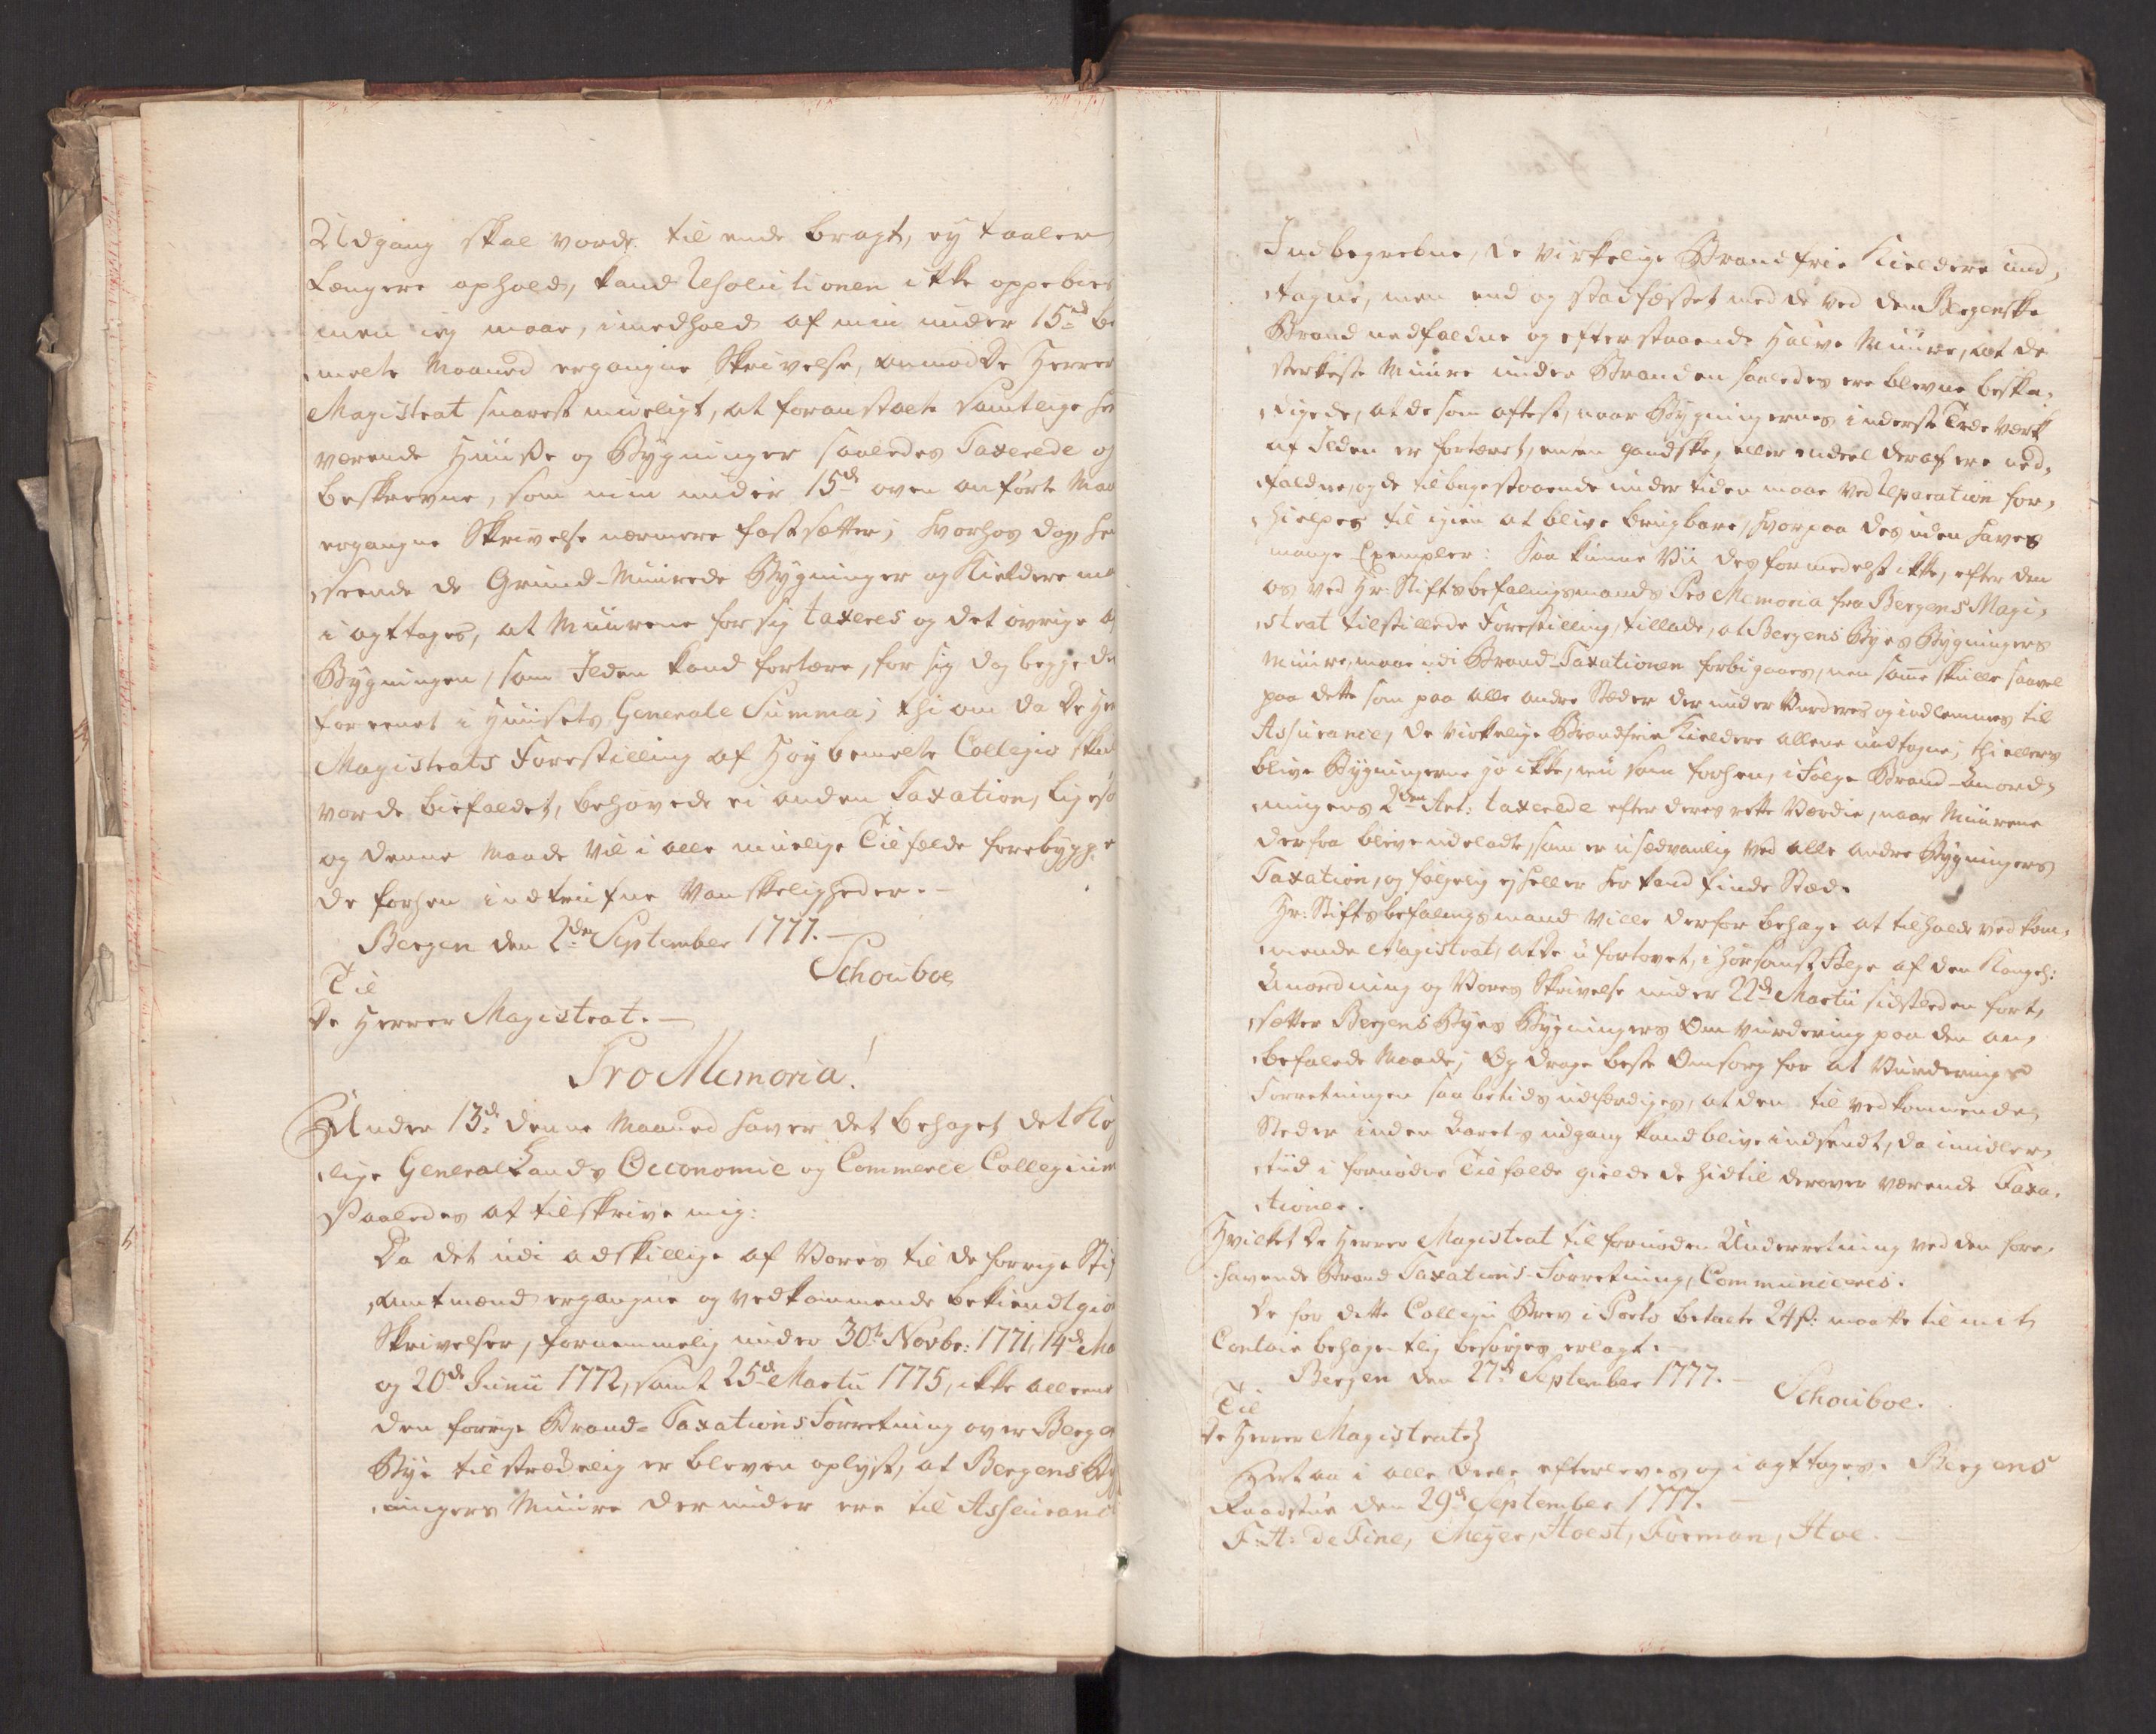 Udgang skal vorde til ende bragt, ey taaler
længere ophold, kand Resolutionen ikke oppebies
men jeg maae, i medhold af min under 15de be
melte Maaned ergangne Skrivelse, anmode De Herrer
Magistrat snarest mueligt, at foranstalte samtlige her
værende Huuse og Bygninger saaledes Taxerede og
beskrevne, som min under 15de oven anførte Maa
ergangne Skrivelse nærmere fastsætter; hvorhos dog, hen
seende de Grund-Muurede Bygninger og Kieldere maa
i agttages, at Muurene for sig taxeres og det øvrige af
Bygningen, som Ilden kand fortære, for sig dog begge de
foreenet i Huusets Generale Summa; thi om da De Her
Magistrats Forestilling af Høybemelte Collegio skul
vorde bifaldet, behøvede ei anden Taxation, ligeso
og denne Maade vil i alle muelige Tilfælde forebygge
de forhen indtrufne Vanskeligheder.-
Bergen den 2den September 1777.-
Schouboe
Til
De Herrer Magistrat.-
Pro Memoria!
Under 13de denne Maaned haver det behaget det Ko
lige General Lands Oeconomie og Commerce Collegium
Saaledes at tilskrive mig:
Da det udi adskillige af Vores til de forrige Stif
Amtmænd ergangne og vedkommende bekiendtgior
Skrivelser, fornemmelig under 30te Novbr: 1771, 14de Ma
og 20de Junii 1772, samt 25de Martii 1775, ikke alleene
den forrige Brand-Taxations Forretning over Berge
Bye tilstrædelig er bleven oplyst, at Bergens By
ningers Muure derunder ere til Assurance
Indbegrebne, de virkelige Brandfrie Kieldere und,
tagne, men end og stadfæstet med de ved den Bergenske
Brand nedfaldne og efterstaaende halve Muure, at de
sterkeste Muure under Branden saaledes ere blevne beska,
digede, at de som oftest, naar Bygningernes inderste Træeværk
af Ilden er fortæret, enten gandske, eller endeel deraf ere ned,
faldne, og de tilbagestaaende under tiden maae ved Reparation for,
hielpes til igien at blive brugbare, hvorpaa des uden haves
mange Exempler: Saa kunne Vii desformedelst ikke, efter den
os ved Hr: Stiftsbefalingsmands Pro Memoria fra Bergens Magi,
strat tilstillede Forestilling, tillade, at Bergens Byes Bygningers
Muure, maae udi Brand-Taxationen forbigaaes, men samme skulle saavel
paa dette som paa alle andre Stæder der under Vurderes og indlemmes til
Assurance, de virkelige Brandfrie Kieldere allene undtagne; thi ellers
blive Bygningerne jo ikke, nu som forhen, i Følge Brand-Anord,
ningens 2den Art: taxerede efter deres rette Værdie, naar Muurene
derfra bleve udeladt, som er usædvanlig ved alle andre Bygningers
Taxation, og følgelig ej heller her kand finde Stæd.
Hr: Stiftsbefalingsmand ville derfor behage at tilholde vedkom,
mende Magistrat, at de ufortøvet, i hørsomst Følge af den Kongel:
Anordning og Vores Skrivelse under 22de Martii sidstleden fort,
sætter Bergens Byes Bygningers Om Vurdering paa den an,
befalede Maade; Og drage beste Omsorg for at Vurderings
Forretningen saa betids udfærdiges, at den til vedkommende
Steder inden Aarets udgang kand blive indsendt, da imidler,
tiid i fornødne Tilfælde gielde de hidtil derover værende Taxa,
tioner.
Hvilket De Herrer Magistrat til fornøden Underretning ved den fore,
havende Brand Taxations-Forretning, Communiceres.
De for dette Collegii Brev i Porto betalte 24 ß: maatte til mit
Contoir behagentlig besørges erlagt.-
Bergen den 27de September 1777.-
Schouboe.
Til
De Herrer Magistrat
Dertaa i alle Deele efterleves og i agttages. Bergens
Raadstue den 29de September 1777.-
F: H: de Fine, Meyer, Hoest, Forman, Hoe.